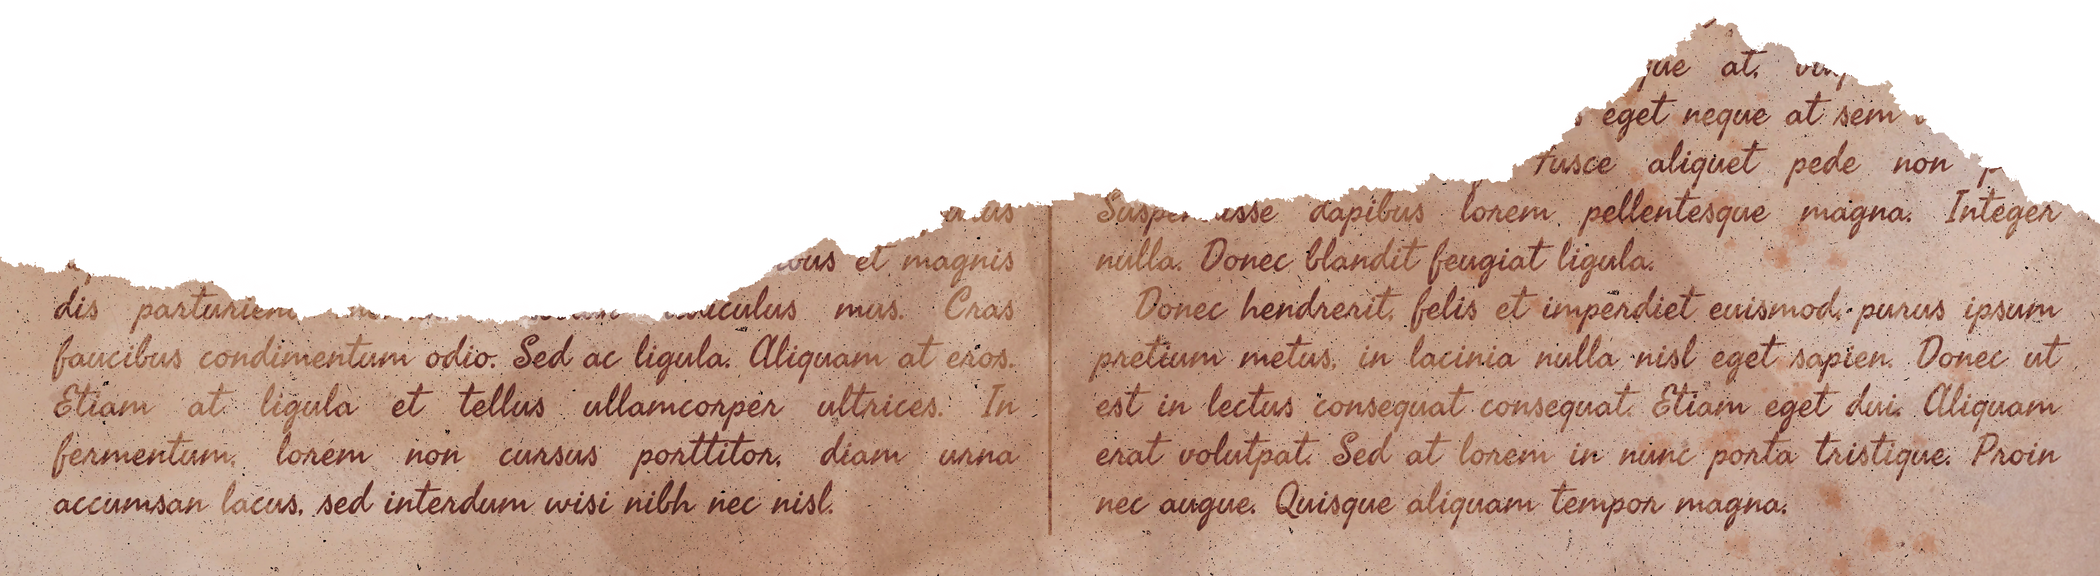 et magnis
dis mus. Cras
faucibus condimentum odio. Sed ac ligula. Aliquam at eros.
Etiam at ligula et tellus ullamcorper ultrices. In
fermentum, lorem non cursus porttitor, diam urna
accumsan lacus, sed interdum wisi nibh nec nisl.
at,
eget neque at sem
Fusce aliquet pede non
dapibus lorem pellentesque magna. Integer
nulla. Donec blandit feugiat ligula.
Donec hendrerit, felis et imperdiet euismod, purus ipsum
pretium metus, in lacinia nulla nisl eget sapien. Donec ut
est in lectus consequat consequat. Etiam eget dui. Aliquam
erat volutpat. Sed at lorem in nunc porta tristique. Proin
nec augue. Quisque aliquam tempor magna.